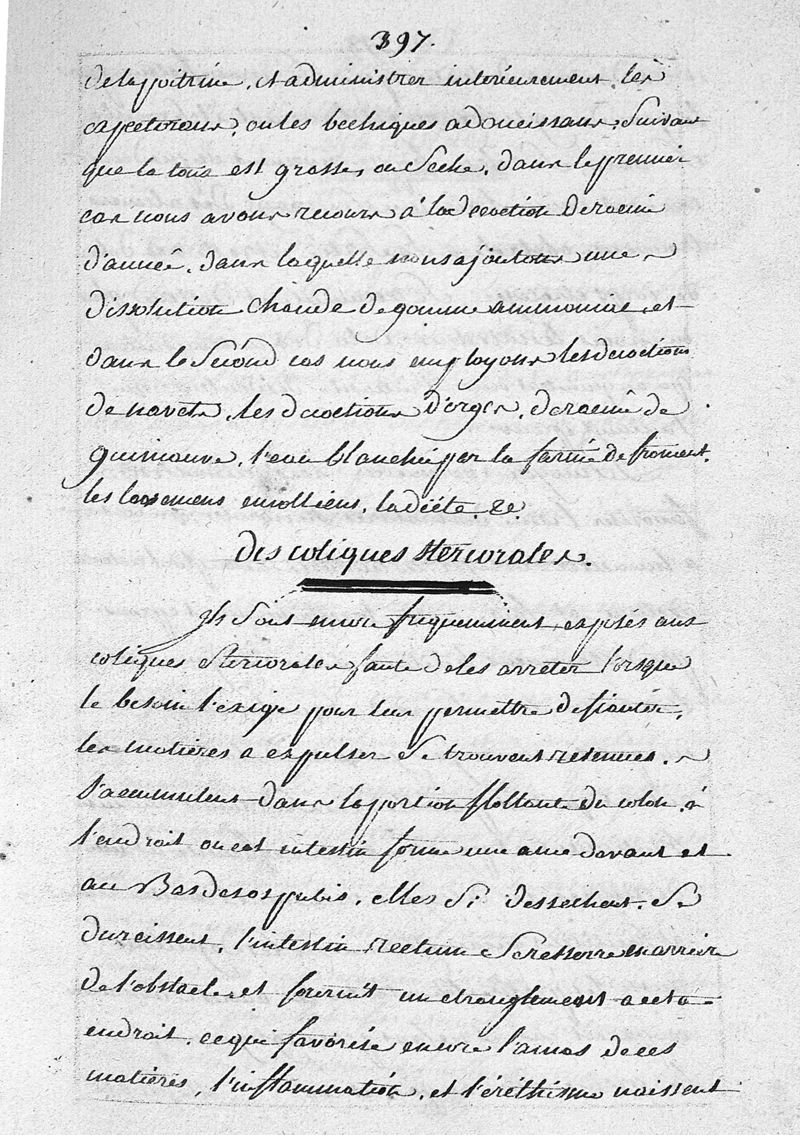 397.
de la poitrine, et administrer intérieurement, les
expectorans, ou les bechiques adoucissans, Suivant
que la toux est grasse, ou Seche, dans le premier
cas nous avons recours à la decoction de racine
d'aunée, dans laquelle nous ajoutons une
dissolution chaude de gomme ammoniac, et
dans le Second cas nous employons les decoctions
de navets, les decoctions d'orge, de racine de
guimauve, l'eau blanchie par la farine de froment,
les lavemens emolliens, la diète &c
Des coliques Stercorales.
Ils Sont frequemment, exposés aux
coliques Stercorales faute de les arreter lorsque
le besoin l'exige pour leur permettre de fianter,
les matières a expulser Se trouvent retenues,
S'accumulent dans la portion flottante du colon, à
l'endroit ou cet intestin forme une anse devant et
au Bas des os pubis, elles Si dessechent, Se
durcissent, l'intestin rectum Se resserre en arriere
de l'obstacle, et fournit un etranglement a cet
endroit, ce qui favorise encore l'amas de ces
matières, l'inflammation, et l'éréthisme naissent